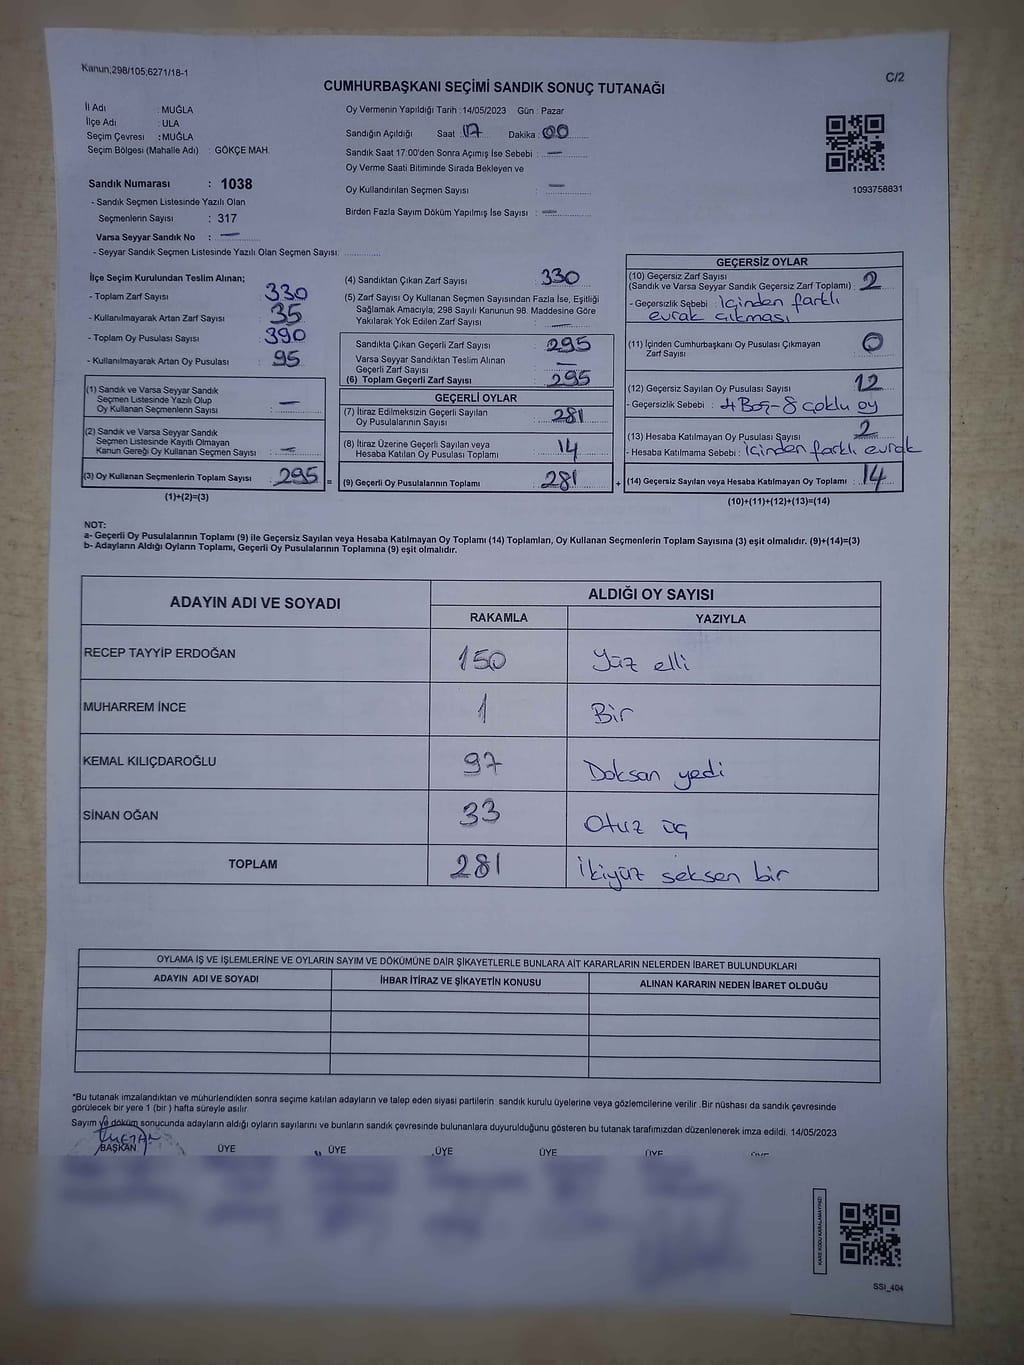 Kanun;298/105;6271/18-1
C/2
CUMHURBAŞKANI SEÇİMİ SANDIK SONUÇ TUTANAĞI
İl Adı : MUĞLA
İlçe Adı : ULA
Seçim Çevresi : MUĞLA
Seçim Bölgesi (Mahalle Adı) : GÖKÇE MAH.
Sandık Numarası : 1038
- Sandık Seçmen Listesinde Yazılı Olan
Seçmenlerin Sayısı : 317
Varsa Seyyar Sandık No : —
- Seyyar Sandık Seçmen Listesinde Yazılı Olan Seçmen Sayısı:
Oy Vermenin Yapıldığı Tarih : 14/05/2023 Gün : Pazar
Sandığın Açıldığı Saat : 17 Dakika : 00
Sandık Saat 17:00'den Sonra Açımış İse Sebebi : —
Oy Verme Saati Bitiminde Sırada Bekleyen ve
Oy Kullandırılan Seçmen Sayısı : —
Birden Fazla Sayım Döküm Yapılmış İse Sayısı : —
1093758831
İlçe Seçim Kurulundan Teslim Alınan;
- Toplam Zarf Sayısı : 330
- Kullanılmayarak Artan Zarf Sayısı : 35
- Toplam Oy Pusulası Sayısı : 390
- Kullanılmayarak Artan Oy Pusulası : 95
(1) Sandık ve Varsa Seyyar Sandık
Seçmen Listesinde Yazılı Olup
Oy Kullanan Seçmenlerin Sayısı : —
(2) Sandık ve Varsa Seyyar Sandık
Seçmen Listesinde Kayıtlı Olmayan
Kanun Gereği Oy Kullanan Seçmen Sayısı : —
(3) Oy Kullanan Seçmenlerin Toplam Sayısı : 295 =
(1)+(2)=(3)
(4) Sandıktan Çıkan Zarf Sayısı : 330
(5) Zarf Sayısı Oy Kullanan Seçmen Sayısından Fazla İse, Eşitliği
Sağlamak Amacıyla; 298 Sayılı Kanunun 98. Maddesine Göre
Yakılarak Yok Edilen Zarf Sayısı : —
Sandıkta Çıkan Geçerli Zarf Sayısı : 295
Varsa Seyyar Sandıktan Teslim Alınan
Geçerli Zarf Sayısı : —
(6) Toplam Geçerli Zarf Sayısı : 295
GEÇERLİ OYLAR
(7) İtiraz Edilmeksizin Geçerli Sayılan
Oy Pusulalarının Sayısı : 281
(8) İtiraz Üzerine Geçerli Sayılan veya
Hesaba Katılan Oy Pusulası Toplamı : 14
(9) Geçerli Oy Pusulalarının Toplamı : 281 +
GEÇERSİZ OYLAR
(10) Geçersiz Zarf Sayısı
(Sandık ve Varsa Seyyar Sandık Geçersiz Zarf Toplamı) : 2
- Geçersizlik Sebebi : içinden farklı
evrak çıkması
(11) İçinden Cumhurbaşkanı Oy Pusulası Çıkmayan
Zarf Sayısı : 0
(12) Geçersiz Sayılan Oy Pusulası Sayısı : 12
- Geçersizlik Sebebi : 4 Boş-8 çoklu oy
(13) Hesaba Katılmayan Oy Pusulası Sayısı : 2
- Hesaba Katılmama Sebebi : içinden farklı evrak
(14) Geçersiz Sayılan veya Hesaba Katılmayan Oy Toplamı : 14
(10)+(11)+(12)+(13)=(14)
NOT:
a- Geçerli Oy Pusulalarının Toplamı (9) ile Geçersiz Sayılan veya Hesaba Katılmayan Oy Toplamı (14) Toplamları, Oy Kullanan Seçmenlerin Toplam Sayısına (3) eşit olmalıdır. (9)+(14)=(3)
b- Adayların Aldığı Oyların Toplamı, Geçerli Oy Pusulalarının Toplamına (9) eşit olmalıdır.
ADAYIN ADI VE SOYADI
ALDIĞI OY SAYISI
RAKAMLA YAZIYLA
RECEP TAYYİP ERDOĞAN 150 Yüz elli
MUHARREM İNCE 1 Bir
KEMAL KILIÇDAROĞLU 97 Doksan yedi
SİNAN OĞAN 33 Otuz üç
TOPLAM 281 İkiyüz seksen bir
OYLAMA İŞ VE İŞLEMLERİNE VE OYLARIN SAYIM VE DÖKÜMÜNE DAİR ŞİKAYETLERLE BUNLARA AİT KARARLARIN NELERDEN İBARET BULUNDUKLARI
ADAYIN ADI VE SOYADI İHBAR İTİRAZ VE ŞİKAYETİN KONUSU ALINAN KARARIN NEDEN İBARET OLDUĞU
*Bu tutanak imzalandıktan ve mühürlendikten sonra seçime katılan adayların ve talep eden siyasi partilerin sandık kurulu üyelerine veya gözlemcilerine verilir .Bir nüshası da sandık çevresinde
görülecek bir yere 1 (bir ) hafta süreyle asılır.
Sayım ve döküm sonucunda adayların aldığı oyların sayılarını ve bunların sandık çevresinde bulunanlara duyurulduğunu gösteren bu tutanak tarafımızdan düzenlenerek imza edildi. 14/05/2023
BAŞKAN ÜYE ÜYE ÜYE ÜYE ÜYE ÜYE
KARE KODU KARALAMAYINIZ!
SSI_404